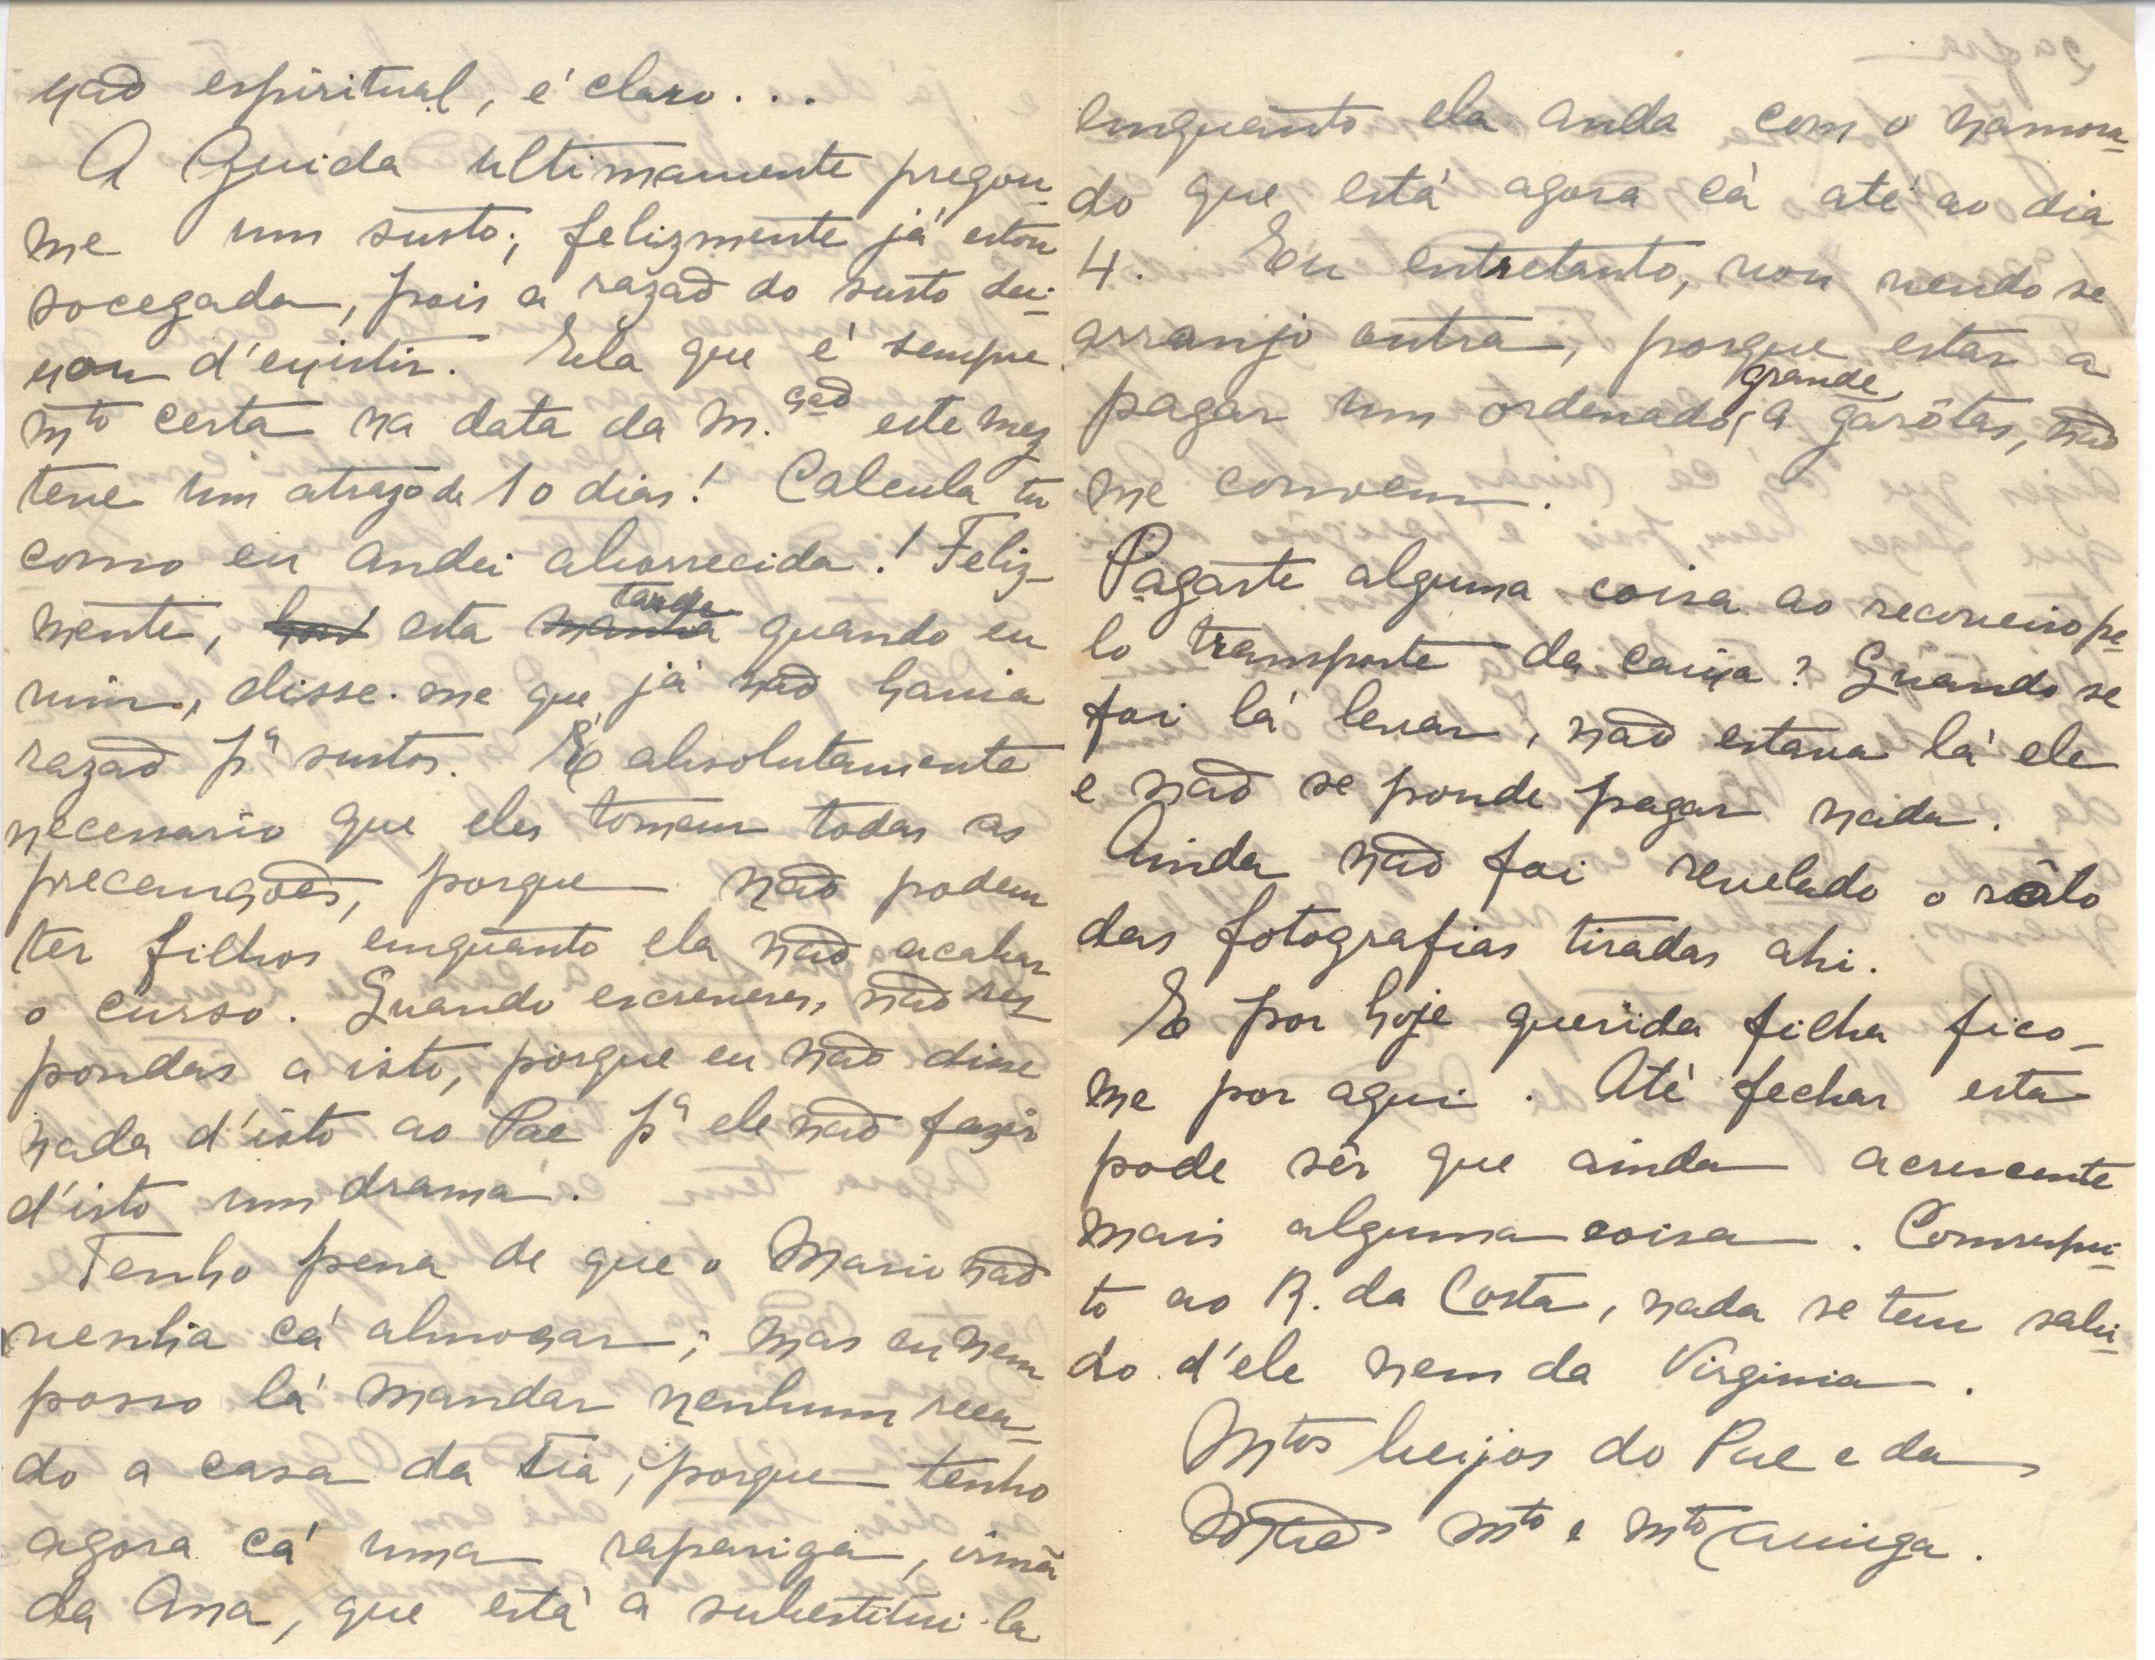 ção espiritual, é claro...
A Guida ultimamente pregou-
me um susto; felizmente já estou
socegada, pois a razão do susto dei-
xou d'existir. Ela que é sempre
mto certa na data da m.ção este mez
teve um atrazo de 10 dias! Calcula tu
como eu andei aborrecida! Feliz-
mente, esta tarde quando eu
vim, disse-me que já não havia
razão pª sustos. É absolutamente
necessario que eles tomem todas as
precauções, porque não podem
ter filhos emquanto ela não acabar
o curso. Quando escreveres, não res-
pondas a isto, porque eu não disse
nada d'isto ao Pae pª ele não fazer
d'isto um drama.
Tenho pena de que o Mario não
venha cá almoçar; mas eu nem
posso lá mandar nenhum reca-
do a casa da tia, porque tenho
agora cá uma rapariga, irmã
da Ana, que está a substitui-la
emquanto ela anda com o namora-
do que está agora cá até ao dia
4. Eu entretanto, vou vendo se
arranjo outra, porque estar a
pagar um ordenado grande a garôtas, não
me convem.
Pagaste alguma coisa ao recoveiro pe-
lo transporte da caixa? Quando se
foi lá levar, não estava lá ele
e não se poude pagar nada.
Ainda não foi revelado o rôlo
das fotografias tiradas ahi.
E por hoje querida filha fico-
me por aqui. Até fechar esta
pode sêr que ainda acrescente
mais alguma coisa. Com respei-
to ao R. da Costa, nada se tem sabi-
do d'ele nem da Virginia.
Mtos beijos do Pae e da
Mãe mto e mto amiga.